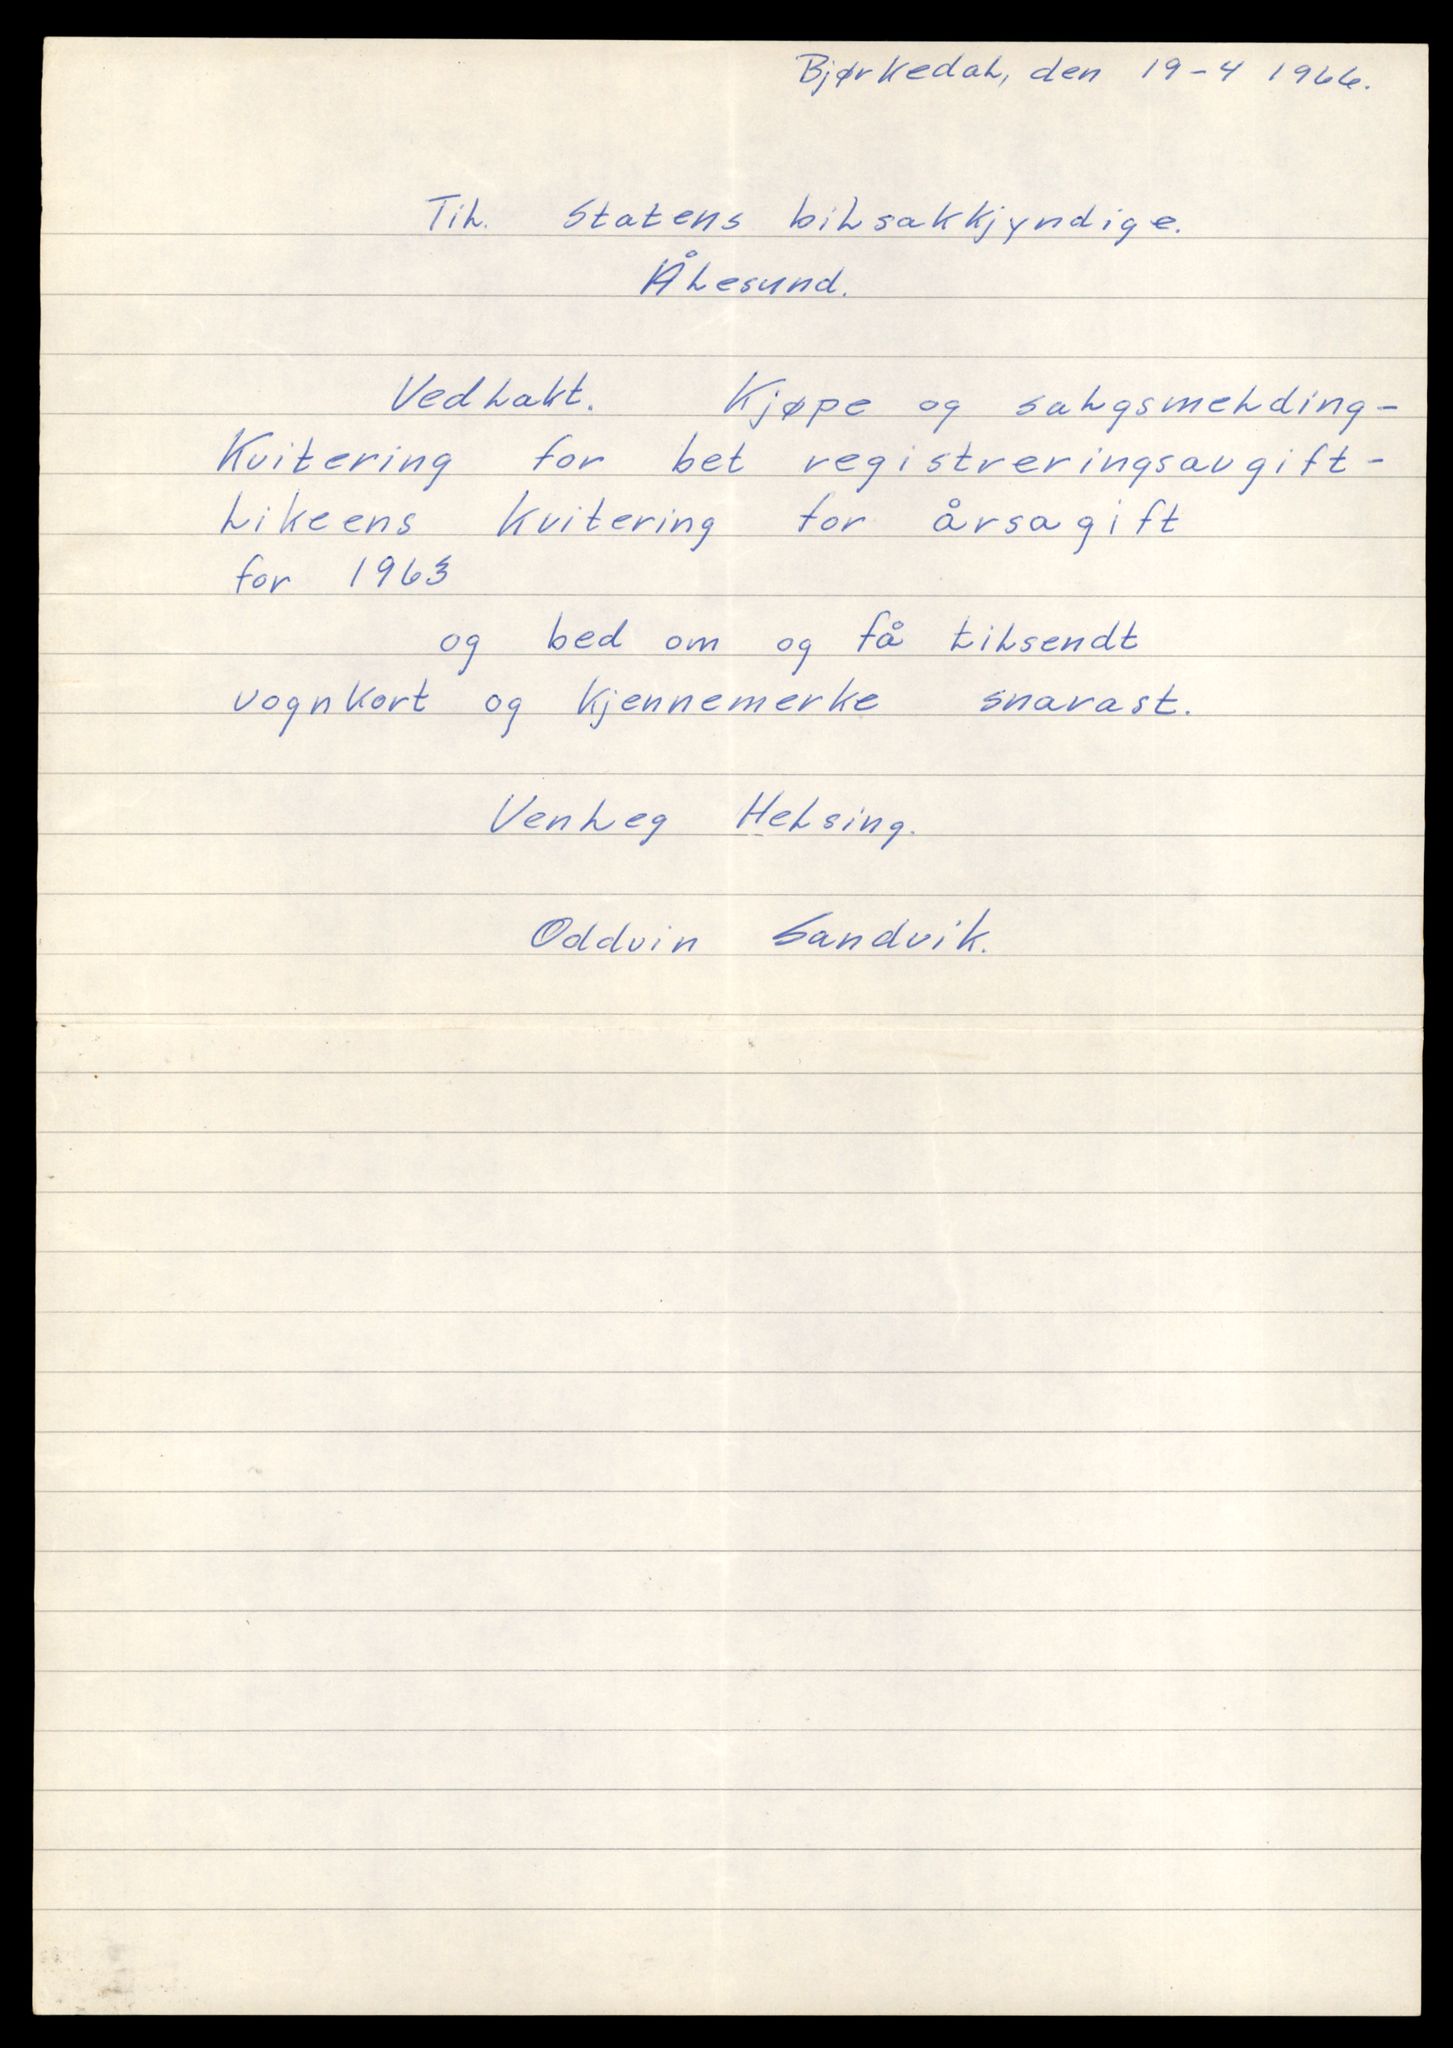 Bjørkedal, den 19-4 1966.
Til. Statens bilsakkjyndige.
Ålesund.
Vedlakt. Kjøpe og salgsmelding-
Kvitering for bet registreringsavgift-
Likeens kvitering for årsagift
for 1963
og bed om og få tilsendt
vognkort og kjennemerke snarast.
Venleg Helsing.
Oddvin Sandvik.